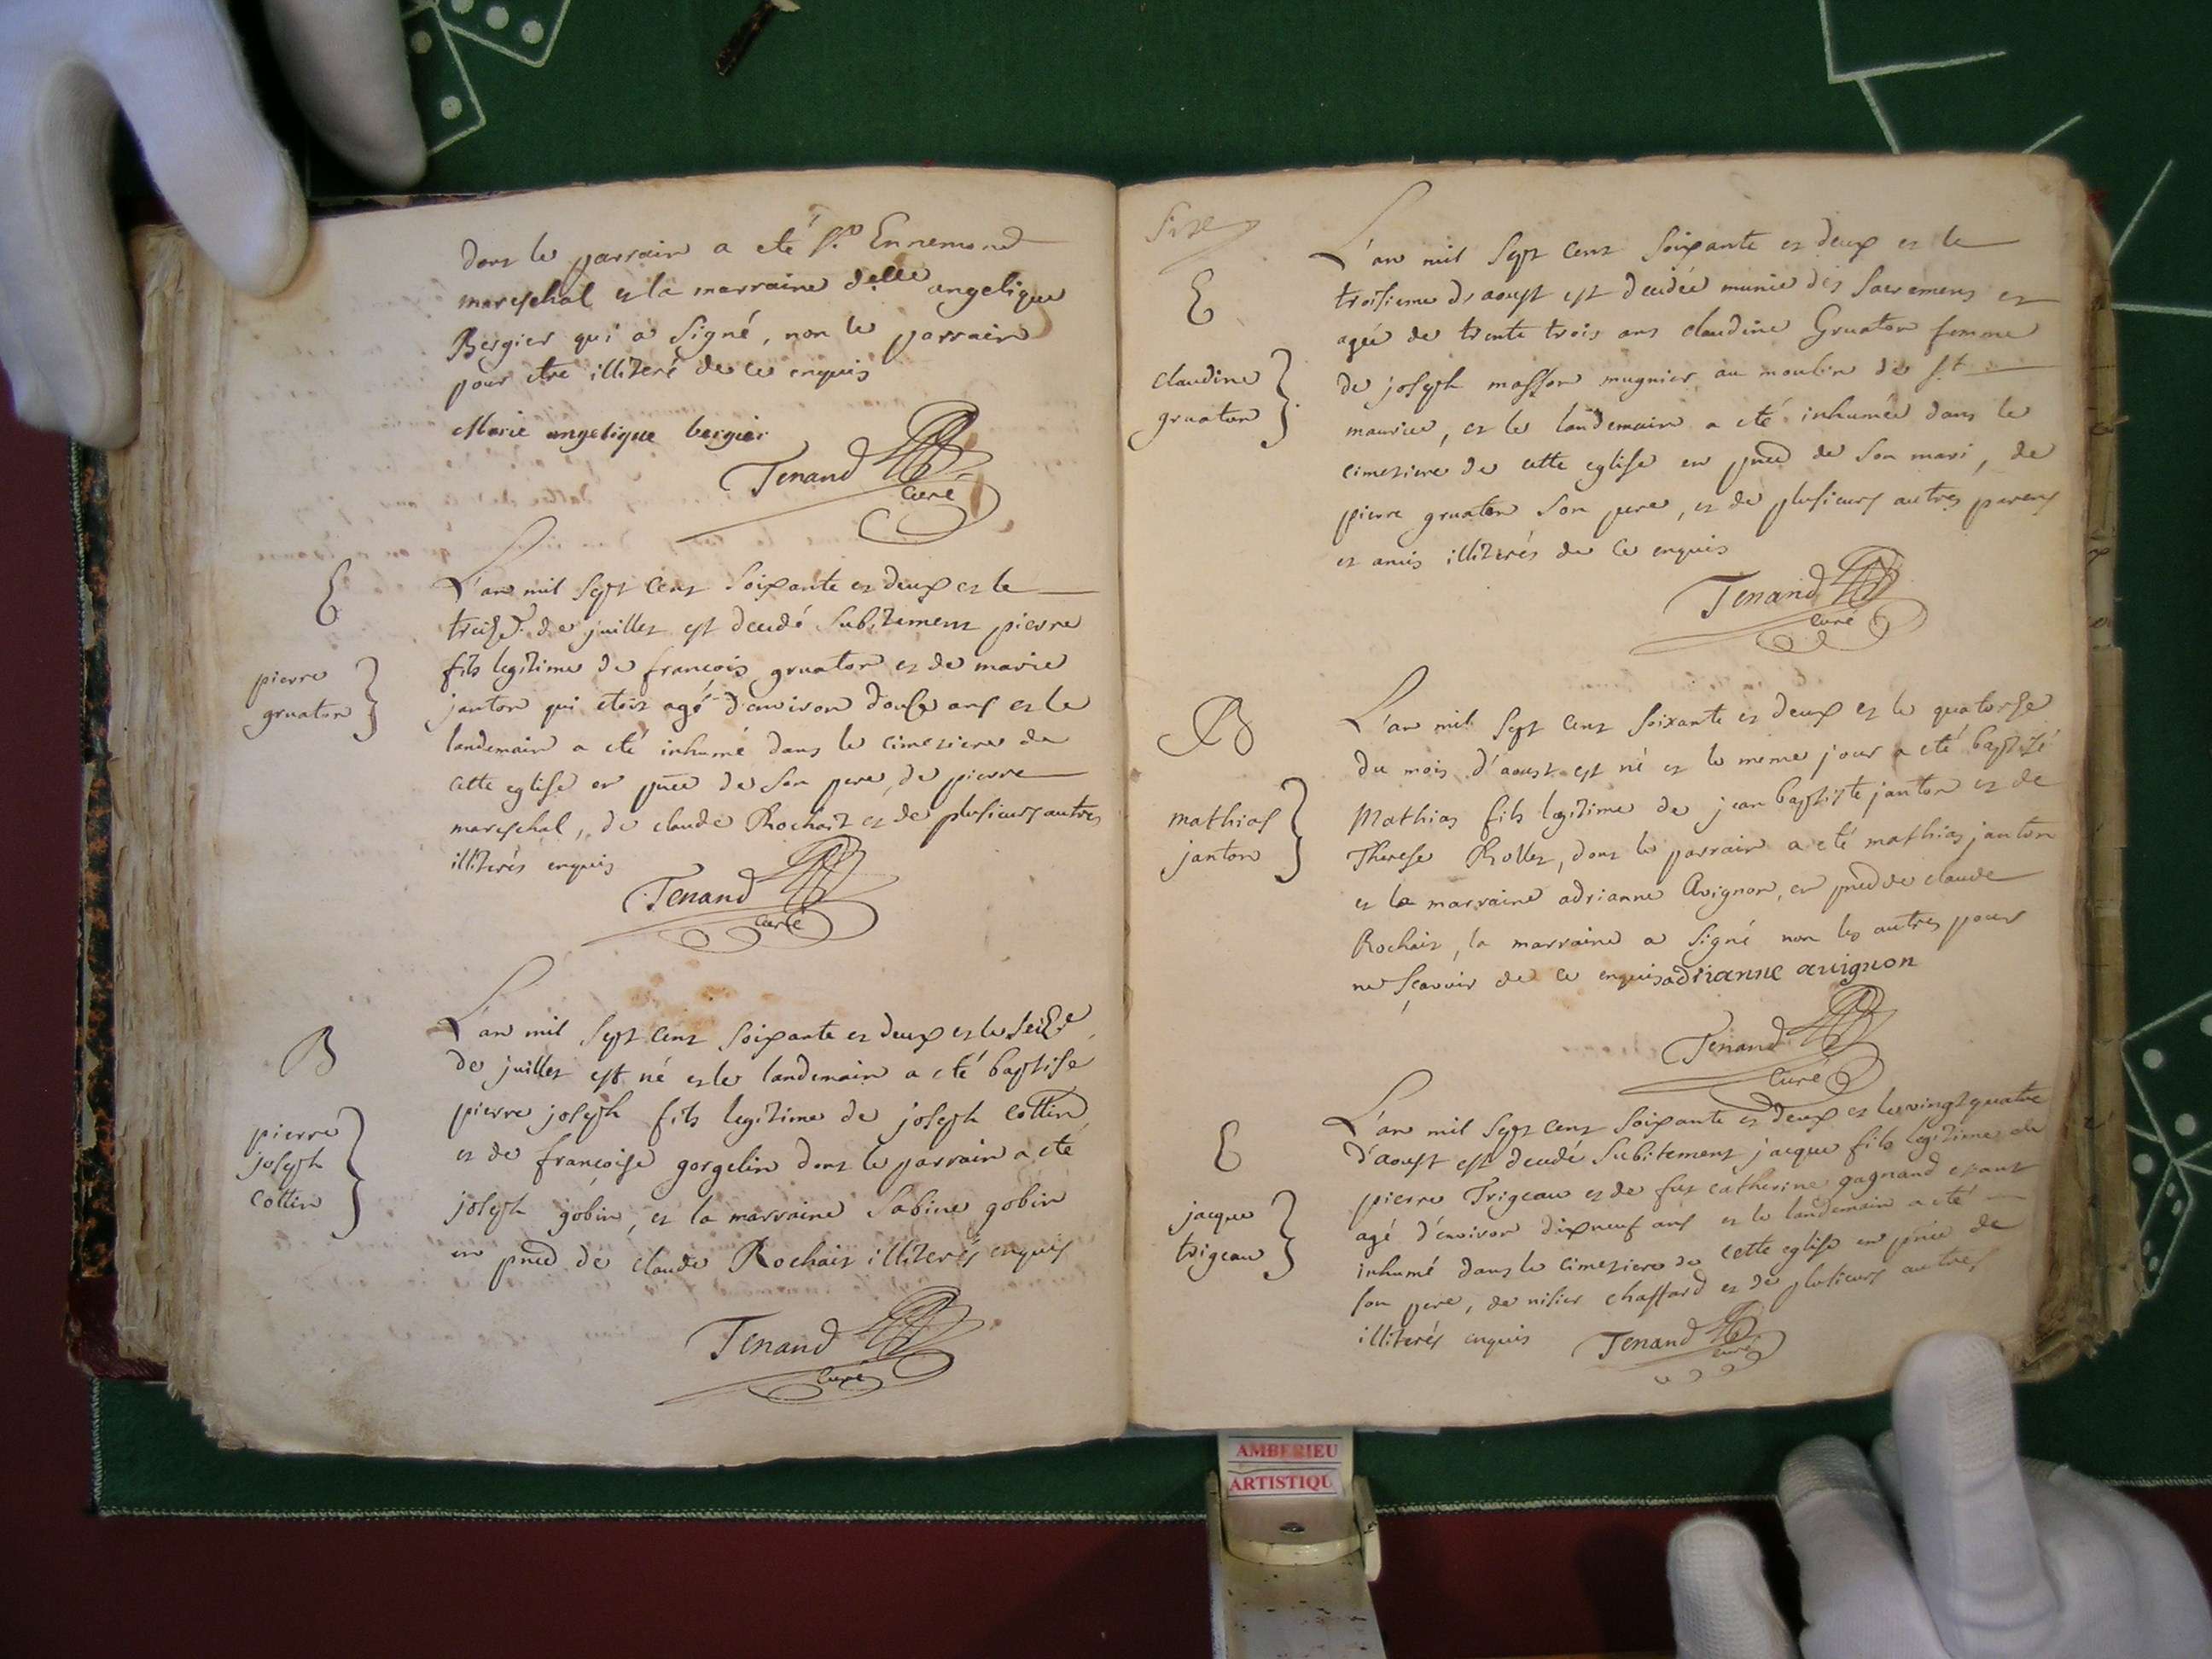 dont le parrain a eté Sr Ennemond
mareschal et la marraine delle angelique
Bergier qui a signé, non le parrain
pour etre illiteré de ce enquis
Marie angelique bergier
Tenand
curé
E
pierre
gruaton
L'an mil sept cent soixante et deux et le
treize de juillet est decedé subitement pierre
fils legitime de françois gruaton et de marie
janton qui etoit agé d'environ douse ans et le
landemain a eté inhumé dans le cimetiere de
cette eglise en pnce de son pere, de pierre
mareschal, de claude Rochait et de plusieurs autres
illiterés enquis
Tenand
curé
B
pierre
joseph
cottin
L'an mil sept cent soixante et deux et le seize
de juillet est né et le landemain a eté baptise
pierre joseph fils legitime de joseph cottin
et de françoise gorgelin dont le parrain a eté
joseph gobin, et la marraine Sabine gobin
en pnce de claude Rochait illiterés enquis
Tenand
curé
E
claudine
gruaton
L'an mil sept cent soixante et deux et le
troisieme d'aoust est decedée munie des sacremens et
agée de trente trois ans claudine Gruaton femme
de joseph masson mugnier au moulin de st
maurice, et le landemain a eté inhumée dans le
cimetiere de cette eglise en pnce de son mari, de
pierre gruaton son pere, et de plusieurs autres parens
et amis illiterés de ce enquis
Tenand
curé
B
mathias
janton
L'an mil sept cent soixante et deux et le quatorse
du mois d'aoust est né et le meme jour a eté baptisé
Mathias fils legitime de jean baptiste janton et de
Therese Rollet, dont le parrain a eté mathias janton
et la marraine adrianne Avignon, en pnce de claude
Rochait, la marraine a signé non les autres pour
ne sçavoir de ce enquis adrianne avignon
Tenand
curé
E
jacque
trigeau
L'an mil sept cent soixante et deux et le vingt quatre
d'aoust est decedé subitement jacque fils legitime de
pierre Trigeau et de fut catherine gagnand etant
agé d'environ dixneuf ans et le landemain a eté
inhumé dans le cimetiere de cette eglise en pnce de
son pere, de nisier chaffard et de plusieurs autres
illiterés enquis
Tenand
curé
AMBERIEU
ARTISTIQU